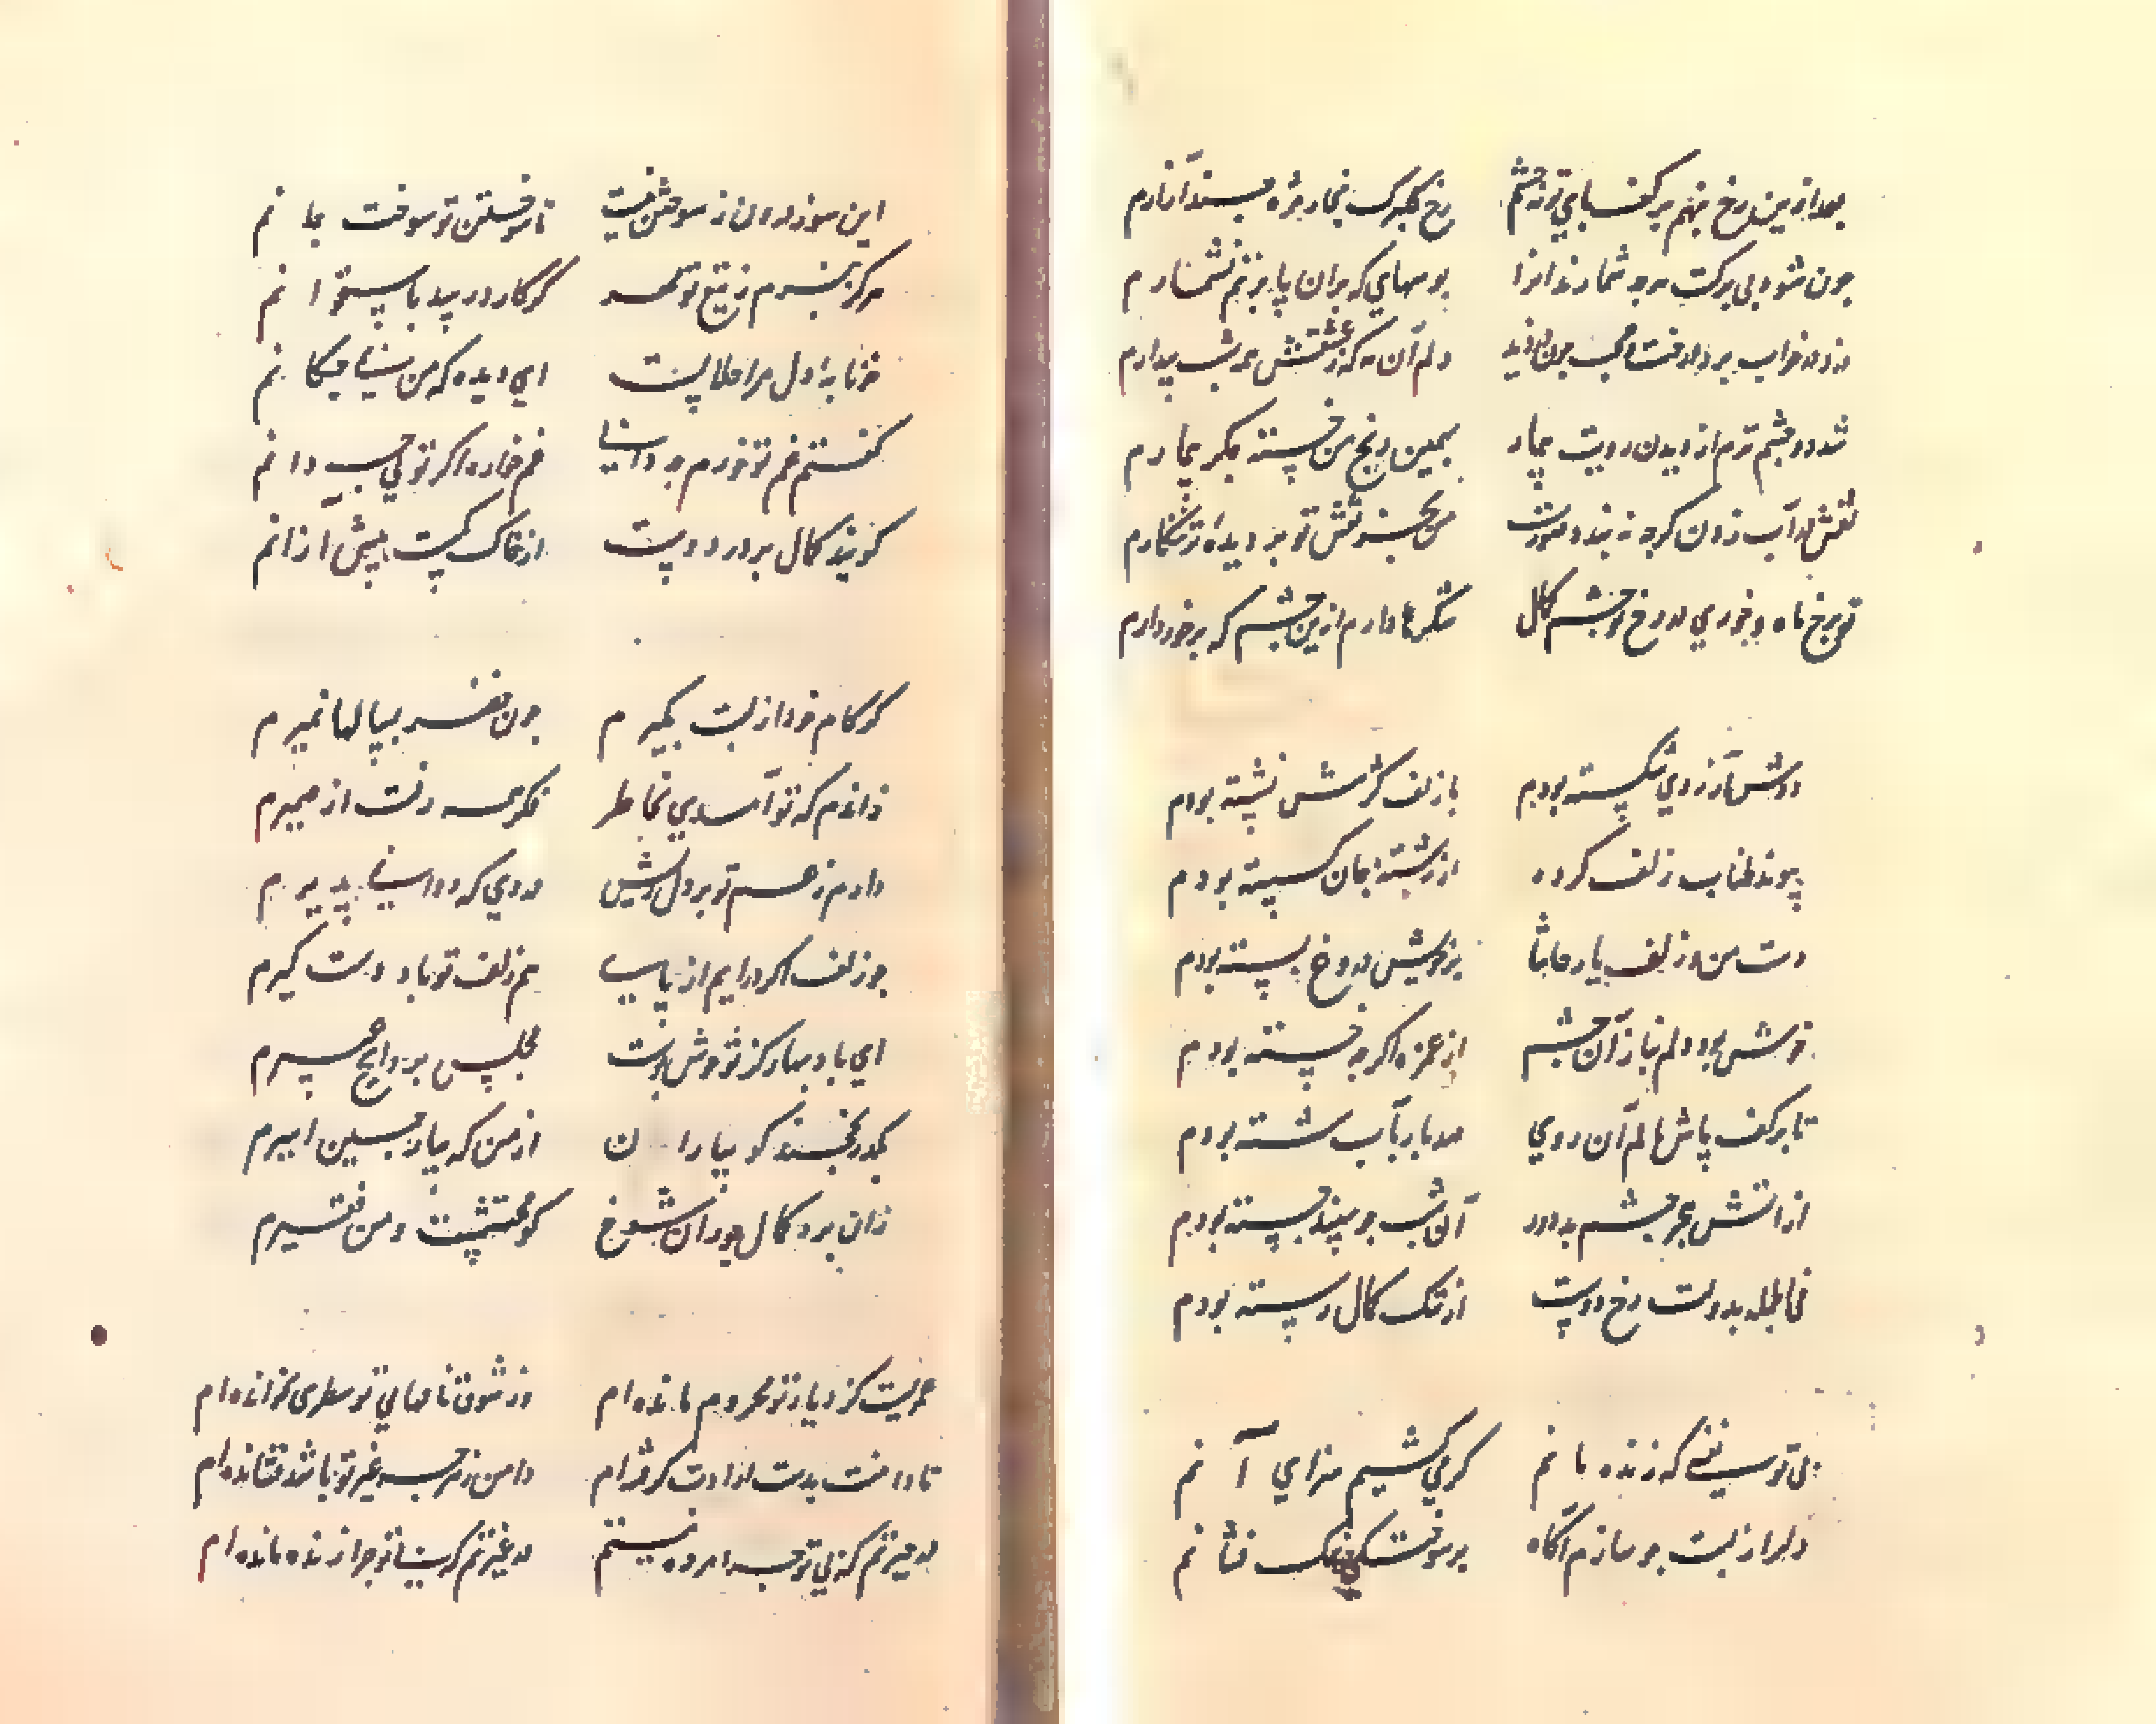 بعد ازین رخ ننهم بر کف پای تو نه چشم رخ گلبرگ بخار مژه چند آزارم
چون شود بی برکت هرچه شمارند انرا بوسهای که بران پا بزنم نشمارم
دلم آن به که ز عشقش همه شب بیدارم
شد دو چشم ترم از دیدن رویت بیمار بهمین رنج من خسته جگر بیمارم
نقش بر آب زدن کرچه نه بندد صورت من نقش تو بر دیده تر بنکارم
تو برخ ماه و خوری در رخ تو چشم کمال شکرها دارم ازین چشم که برخوردارم
دوش آرزوی شکسته بودم با زلف کژش نشسته بودم
پیوند طناب زلف کرده از رشته جان کسسته بودم
دست من و زلف یار حاشا بر خویش دروغ بسته بودم
خوش بود دلم بناز آن چشم از غمزه اکرچه خسته بودم
تا بر کف پاش مالم آن روی صد بار بآب شسته بودم
از آتش هجر چشم بد دور آن شب چو سپند جسته بودم
فی الجمله بدولت رخ دوست از ننک کمال رسته بودم
بی تو نفسی که زنده مانم کر می کشیم سزای آنم
دل را ز لبت چو سازم آکاه بر سوخته کی نمک فشانم
این سوز درون ز سوختن نیست ناسوختن تو سوخت جانم
هرکز نبرم ز تیغ تو مهر کر کارد رسد باستخوانم
خونابه دل مرا حلالست ای دیده که من نمی چکانم
کفتم غم تو خورم چو دانی غم خواره اکر تویی چه دانم
کویند کمال بر در دوست از خاک کمست بیش ارزانم
کر کام خود از لبت بکیرم چون خضر بسالها نمیرم
زاندم که تو آمدی بخاطر فکر همه رفت از ضمیرم
دارم ز غم تو بر دل ریش دردی که دوا نمی پذیرم
چو زلف اکر درایم از پای هم زلف تو باد دست کیرم
ای باد بهار کز تو خوش نیست مجلس برواج عبیرم
بکدر بخجند کو بیاران از من که بیار حسین اسیرم
زان برد کمال جور آن شوخ کو محتشمست و من فقیرم
عمریست کز دیار تو محروم مانده ام وز شوق نامهای تو سطری نخوانده ام
تا دامنت بدست ارادت کرفته ام دامن ز هرچه غیر تو باشد فشانده ام
در حیرتم که بی تو چرا مرده نیستم در غیرتم که بی تو چرا زنده مانده ام